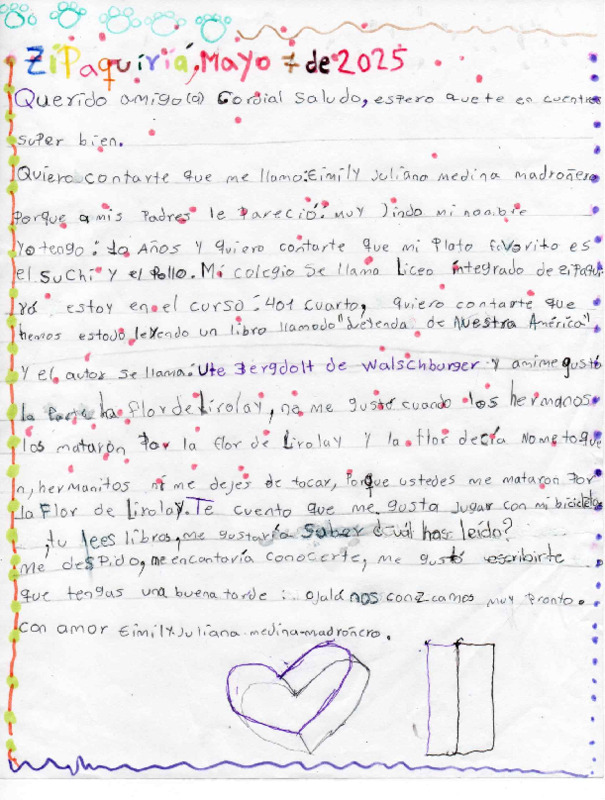 ZiPaquiriá, Mayo 7 de 2025
Querido amigo(a) Cordial Saludo, espero que te en cuentres
super bien.
Quiero contarte que me llamo: Eimily Juliana medina madroñero
Porque a mis Padres le Pareció: muy lindo mi nombre
Yo tengo: 10 Años y quiero contarte que mi Plato favorito es
el Suchi y el Pollo. Mi colegio Se llama Liceo integrado de ZiPaqui
rá estoy en el curso: 401 cuarto, quiero contarte que
hemos estado leyendo un libro llamado "Leyenda de Nuestra América"
Y el autor se llama: Ute Bergdolt de Walschburger y amime gustó
la Parte la flor de Lirolay, no me gustó cuando los hermanos
los mataron Por la flor de Lirolay y la flor decía No me toque
n, hermanitos ni me dejes de tocar, Porque ustedes me mataron Por
la Flor de Lirolay. Te cuento que me gusta jugar con mi bicicleta
,tu lees libros, me gustaría Saber cuál has leído?
me desPido, me encantaría conocerte, me gustó escribirte
que tengas una buena tarde : ojalá nos conzcamos muy Pronto.
con amor Eimily Juliana-medina-madroñero.